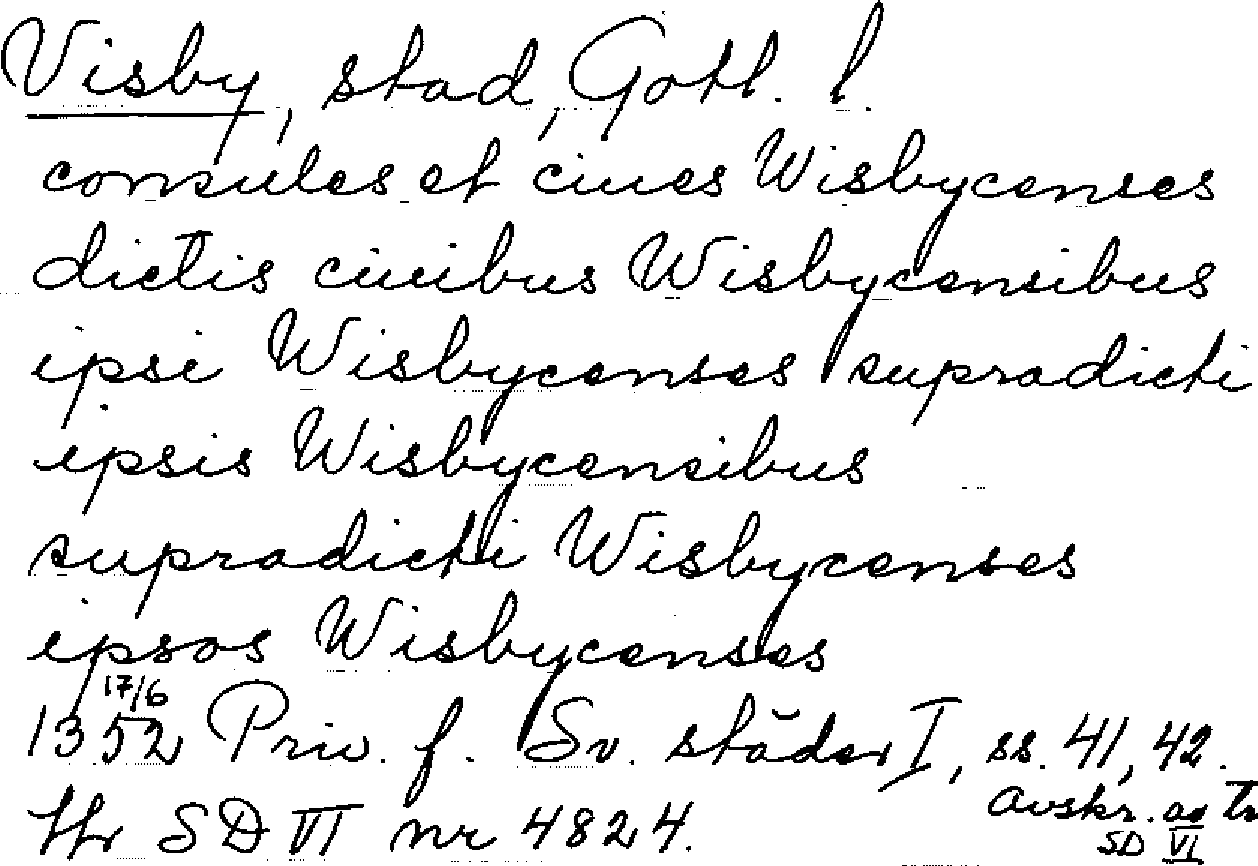 Visby, stad, Gotl. l.
consules et ciues Wisbycenses
dictis ciuibus Wisbycensibus
ipsi Wisbycenses supradicti
ipsis Wisbycensibus
supradicti Wisbycenses
ipsos Wisbycenses
17/6
1352 Priv. f. Sv. städer I, ss. 41, 42.
Hr SD VI nr 4824.
Avskr. ag tr
SD VI